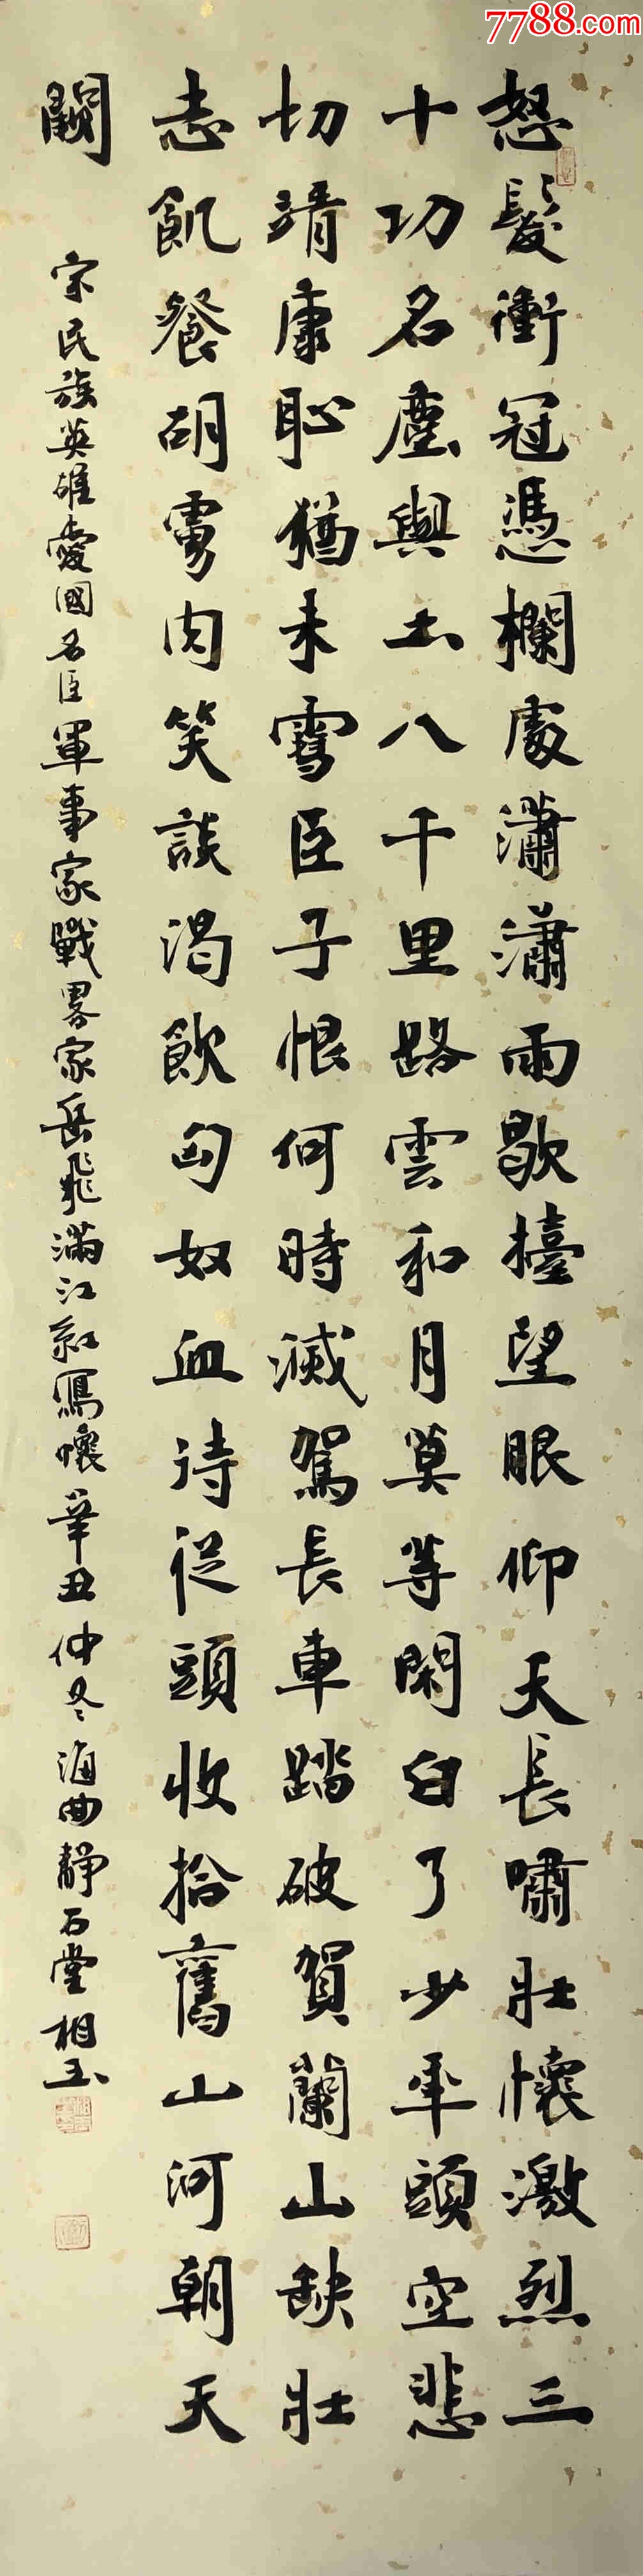 7788.com
怒髮衝冠憑欄處瀟瀟雨歇擡望眼仰天長嘯壯懷激烈三
十功名塵與土八千里路雲和月莫等閑白了少年頭空悲
切靖康恥猶未雪臣子恨何時滅駕長車踏破賀蘭山缺壯
志飢餐胡虜肉笑談渴飲匈奴血待從頭收拾舊山河朝天
闕
宋民族英雄愛國名臣軍事家戰畧家岳飛滿江紅寫懷辛丑仲冬海曲靜石堂相玉